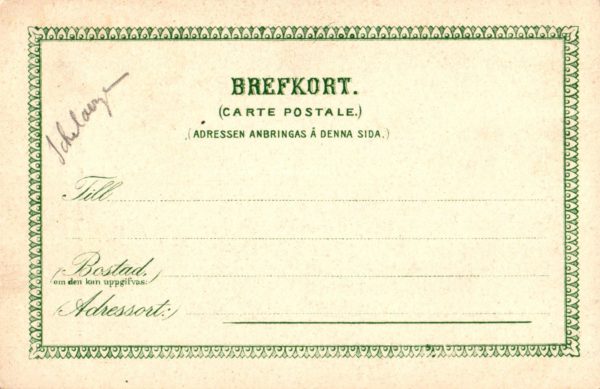 BREFKORT.
(CARTE POSTALE.)
(ADRESSEN ANBRINGAS Å DENNA SIDA.)
Till
(Bostad,)
om den kan uppgifvas:
(Adressort:)